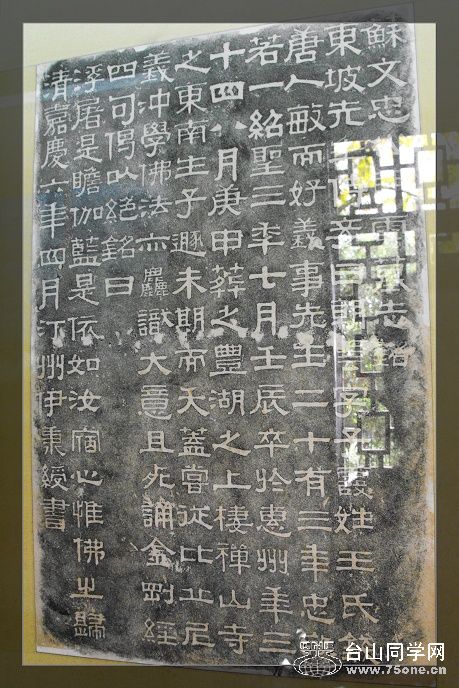 蘇文忠雲墓志銘
東坡先生侍妾曰朝雲字子霞姓王氏錢
唐人敏而好義事先生二十有三年忠
若一紹聖三年七月壬辰卒於惠州年三
十四八月庚申葬之豐湖之上棲禪山寺
之東南生子遯未期而夭蓋嘗從比丘尼
義沖學佛法亦麤識大意且死誦金剛經
四句偈以絕銘曰
浮屠是瞻伽藍是依如汝宿心惟佛之歸
清嘉慶六年四月汀州伊秉綬書
台山同学网
www.75one.cn